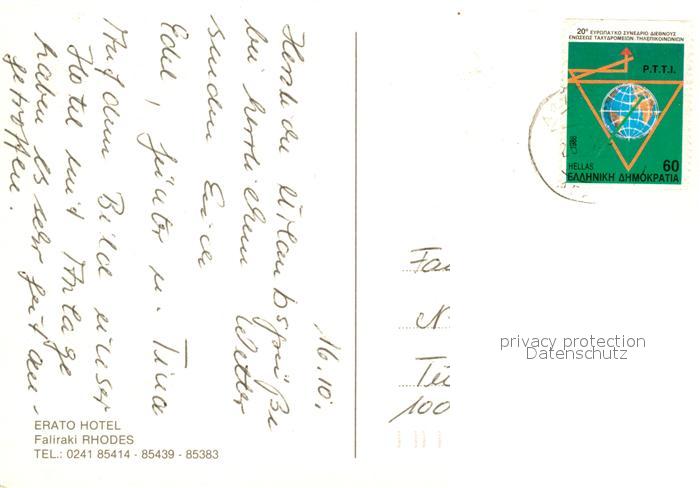 16.10.
Herzliche Urlaubsgrüße
bei herrlichem Wetter
senden Euch
Edel, Günter u. Tina
Auf dem Bild unser
Hotel mit Anlage
haben es sehr gut an-
getroffen.
ERATO HOTEL
Faliraki RHODES
TEL.: 0241 85414 - 85439 - 85383
20º ΕΥΡΩΠΑΥΚΟ ΣΥΝΕΔΡΙΟ ΔΙΕΘΝΟΥΣ
ΕΝΩΣΕΩΣ ΤΑΧΥΔΡΟΜΕΙΩΝ, ΤΗΛΕΠΙΚΟΙΝΩΝΙΩΝ
P.T.T.I.
1988
HELLAS 60
ΕΛΛΗΝΙΚΗ ΔΗΜΟΚΡΑΤΙΑ
Fa
N
100
privacy protection
Datenschutz